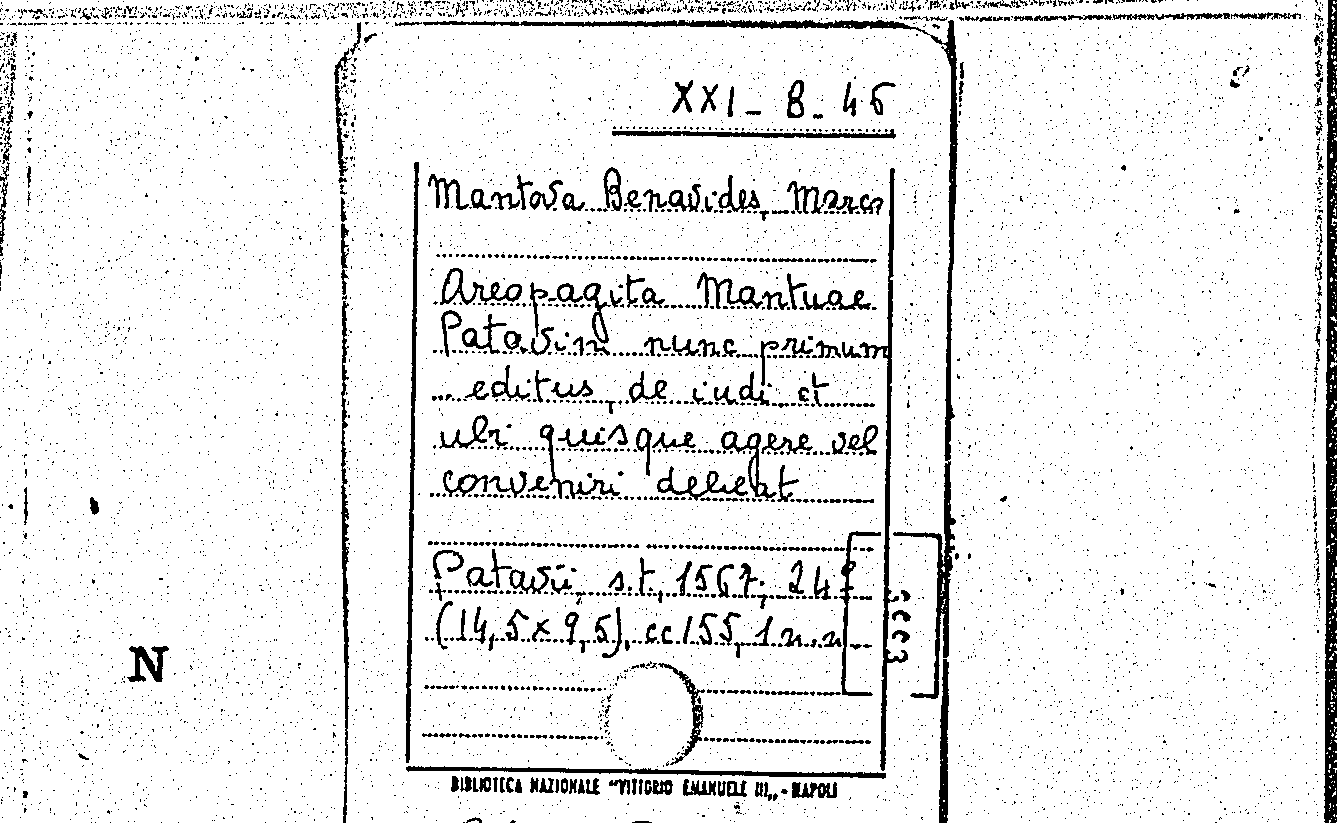 XXI - B - 45
Mantova Benavides, Marco
Areopagita Mantuae
Patavini nunc primum
editus, de iudi et
ubi quisque agere vel
conveniri debeat
Patavii, s.t., 1567; 24º
(14,5 x 9,5), cc 155, 1 n.n.
N
BIBLIOTECA NAZIONALE "VITTORIO EMANUELE III„ - NAPOLI